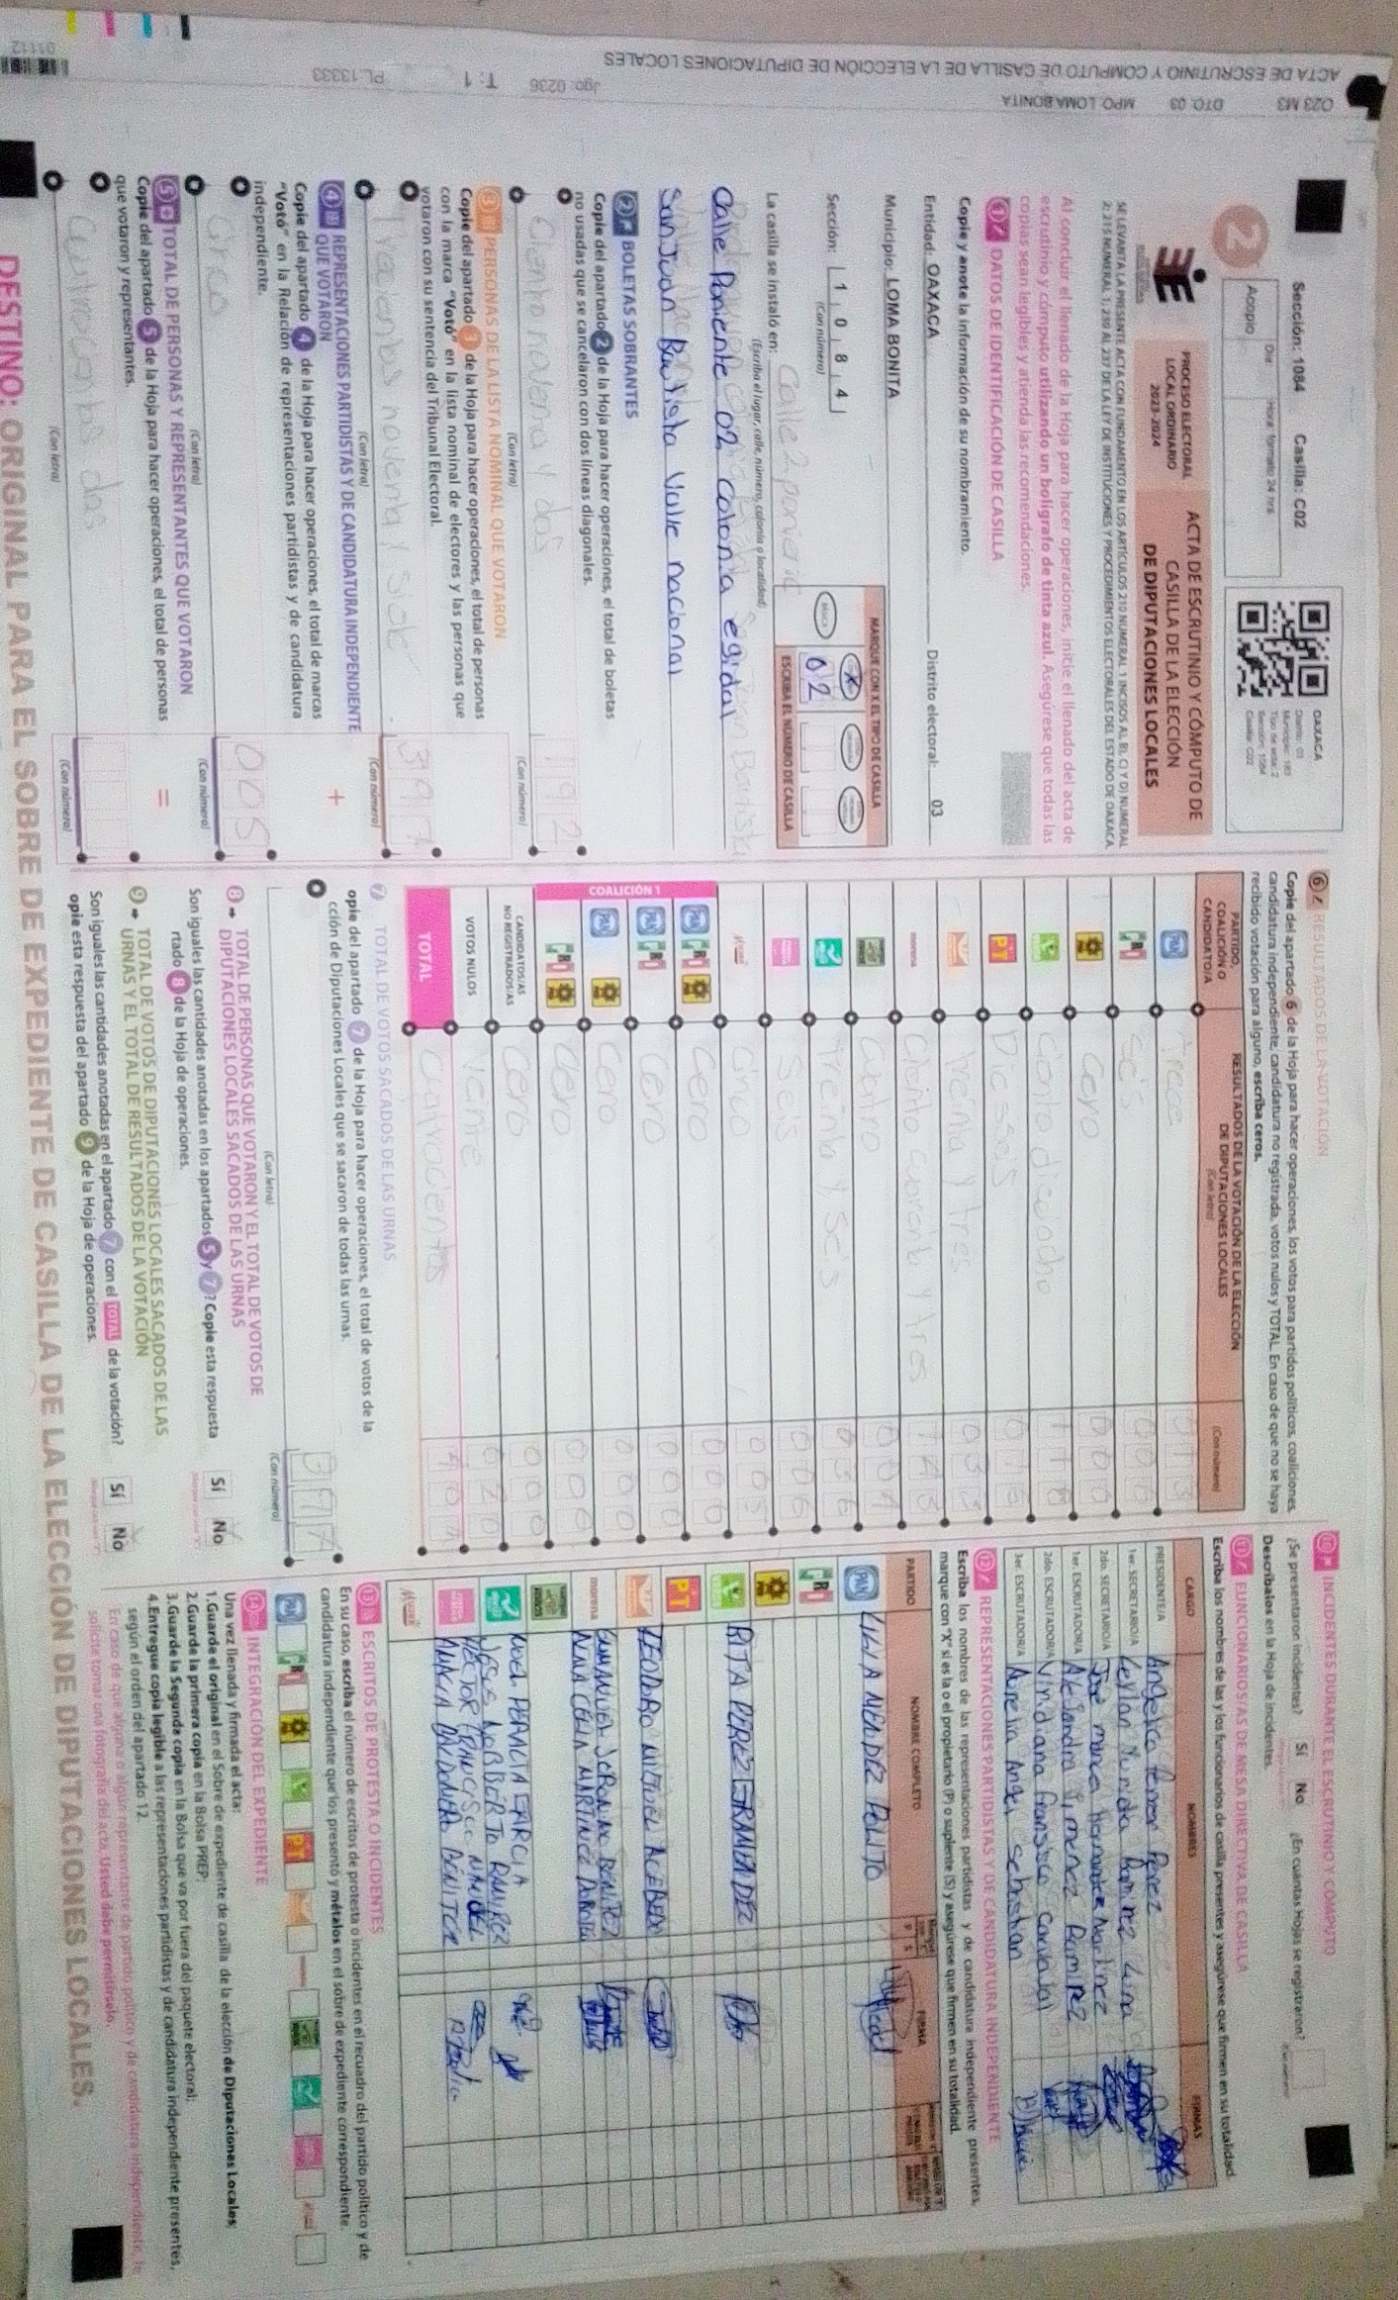 ACTA DE ESCRUTINIO Y CÓMPUTO DE CASILLA DE LA ELECCIÓN DE DIPUTACIONES LOCALES
023 M3 DTO. 03 MPO. LOMA BONITA
Jgo: 0236 T: 1 PL.13333
01112
Sección: 1084 Casilla: C02
2
Acopio
Día Hora: formato 24 hrs
OAXACA
PROCESO ELECTORAL
LOCAL ORDINARIO
2023-2024
ACTA DE ESCRUTINIO Y CÓMPUTO DE
CASILLA DE LA ELECCIÓN
DE DIPUTACIONES LOCALES
SE LEVANTA LA PRESENTE ACTA CON FUNDAMENTO EN LOS ARTÍCULOS 210 NUMERAL 1 INCISOS A), B), C) Y D) NUMERAL
2; 215 NUMERAL 1; 230 AL 237 DE LA LEY DE INSTITUCIONES Y PROCEDIMIENTOS ELECTORALES DEL ESTADO DE OAXACA.
Al concluir el llenado de la Hoja para hacer operaciones, inicie el llenado del acta de
escrutinio y cómputo utilizando un bolígrafo de tinta azul. Asegúrese que todas las
copias sean legibles y atienda las recomendaciones.
1 DATOS DE IDENTIFICACIÓN DE CASILLA
Copie y anote la información de su nombramiento.
Entidad: OAXACA Distrito electoral: 03
Municipio: LOMA BONITA
Sección: 1 0 8 4
(Con número)
MARQUE CON X EL TIPO DE CASILLA
X
02
ESCRIBA EL NÚMERO DE CASILLA
La casilla se instaló en: Calle 2 poniente
(Escriba el lugar, calle, número, colonia o localidad)
Calle Poniente 02 colonia egidal
San Juan Bautista Valle nacional
2 BOLETAS SOBRANTES
Copie del apartado 2 de la Hoja para hacer operaciones, el total de boletas
no usadas que se cancelaron con dos líneas diagonales.
Ciento noventa y dos 192
(Con letra) (Con número)
3 PERSONAS DE LA LISTA NOMINAL QUE VOTARON
Copie del apartado 3 de la Hoja para hacer operaciones, el total de personas
con la marca "Votó" en la lista nominal de electores y las personas que
votaron con su sentencia del Tribunal Electoral.
397
(Con letra) (Con número)
4 REPRESENTACIONES PARTIDISTAS Y DE CANDIDATURA INDEPENDIENTE
QUE VOTARON +
Copie del apartado 4 de la Hoja para hacer operaciones, el total de marcas
"Votó" en la Relación de representaciones partidistas y de candidatura
independiente.
Cinco 005
(Con letra) (Con número)
5 TOTAL DE PERSONAS Y REPRESENTANTES QUE VOTARON =
Copie del apartado 5 de la Hoja para hacer operaciones, el total de personas
que votaron y representantes.
Cuatrocientos dos
(Con letra) (Con número)
6 RESULTADOS DE LA VOTACIÓN
Copie del apartado 6 de la Hoja para hacer operaciones, los votos para partidos políticos, coaliciones,
candidatura independiente, candidatura no registrada, votos nulos y TOTAL. En caso de que no se haya
recibido votación para alguno, escriba ceros.
PARTIDO, COALICIÓN O CANDIDATO/A
RESULTADOS DE LA VOTACIÓN DE LA ELECCIÓN
DE DIPUTACIONES LOCALES
(Con letra) (Con número)
PAN Trece 013
PRI Seis 006
Cero 000
118
PT Dieciseis 016
Treinta y tres 033
morena Ciento cuarenta y tres 143
Cuatro 004
Treinta y seis 036
Seis 006
Cinco 005
COALICIÓN 1
PAN PRI Cero 000
PAN PRI Cero 000
PAN Cero 000
PRI Cero 000
CANDIDATOS/AS
NO REGISTRADOS/AS Cero 000
VOTOS NULOS Veinte 020
TOTAL Cuatrocientos
7 TOTAL DE VOTOS SACADOS DE LAS URNAS
opie del apartado 7 de la Hoja para hacer operaciones, el total de votos de la
cción de Diputaciones Locales que se sacaron de todas las urnas.
397
(Con letra) (Con número)
8 TOTAL DE PERSONAS QUE VOTARON Y EL TOTAL DE VOTOS DE
DIPUTACIONES LOCALES SACADOS DE LAS URNAS
Son iguales las cantidades anotadas en los apartados 5 y 7? Copie esta respuesta
rtado 8 de la Hoja de operaciones.
Sí No
9 TOTAL DE VOTOS DE DIPUTACIONES LOCALES SACADOS DE LAS
URNAS Y EL TOTAL DE RESULTADOS DE LA VOTACIÓN
Son iguales las cantidades anotadas en el apartado 7 con el TOTAL de la votación?
opie esta respuesta del apartado 9 de la Hoja de operaciones.
Sí No
10 INCIDENTES DURANTE EL ESCRUTINIO Y CÓMPUTO
¿Se presentaron incidentes? Sí No ¿En cuántas Hojas se registraron?
Descríbalos en la Hoja de incidentes.
11 FUNCIONARIOS/AS DE MESA DIRECTIVA DE CASILLA
Escriba los nombres de las y los funcionarios de casilla presentes y asegúrese que firmen en su totalidad.
CARGO NOMBRES FIRMAS
PRESIDENTE/A Angelica Perez
1er. SECRETARIO/A Leylan
2do. SECRETARIO/A Jose Martinez
1er. ESCRUTADOR/A Alejandra Jimenez Ramirez
2do. ESCRUTADOR/A Viridiana Fransisco Carvabal
3er. ESCRUTADOR/A Aurelia Angel Sebastian
12 REPRESENTACIONES PARTIDISTAS Y DE CANDIDATURA INDEPENDIENTE
Escriba los nombres de las representaciones partidistas y de candidatura independiente presentes,
marque con "X" si es la o el propietario (P) o suplente (S) y asegúrese que firmen en su totalidad.
PARTIDO NOMBRE COMPLETO FIRMA
PAN LILIA MENDEZ POLITO
PRI
RITA PEREZ FERNANDEZ
PT TEODORO MIGUEL ACEBEDO
EMMANUEL JERONIMO BENITEZ
morena ANA CELIA MARTINEZ
NOEL PERALTA GARCIA
JESUS NORBERTO RAMIREZ
HECTOR FRANCISCO MENDEZ
BENITEZ
13 ESCRITOS DE PROTESTA O INCIDENTES
En su caso, escriba el número de escritos de protesta o incidentes en el recuadro del partido político y de
candidatura independiente que los presentó y métalos en el sobre de expediente correspondiente.
14 INTEGRACIÓN DEL EXPEDIENTE
Una vez llenada y firmada el acta:
1.Guarde el original en el Sobre de expediente de casilla de la elección de Diputaciones Locales;
2.Guarde la primera copia en la Bolsa PREP;
3.Guarde la Segunda copia en la Bolsa que va por fuera del paquete electoral;
4.Entregue copia legible a las representaciones partidistas y de candidatura independiente presentes,
según el orden del apartado 12.
En caso de que alguna o algún representante de partido político y de candidatura independiente, le
solicite tomar una fotografía del acta, Usted debe permitírselo.
DESTINO: ORIGINAL PARA EL SOBRE DE EXPEDIENTE DE CASILLA DE LA ELECCIÓN DE DIPUTACIONES LOCALES.